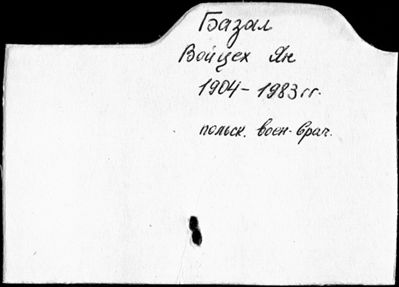 Базал
Войцех Ян
1904-1983гг.
польск. воен. врач.